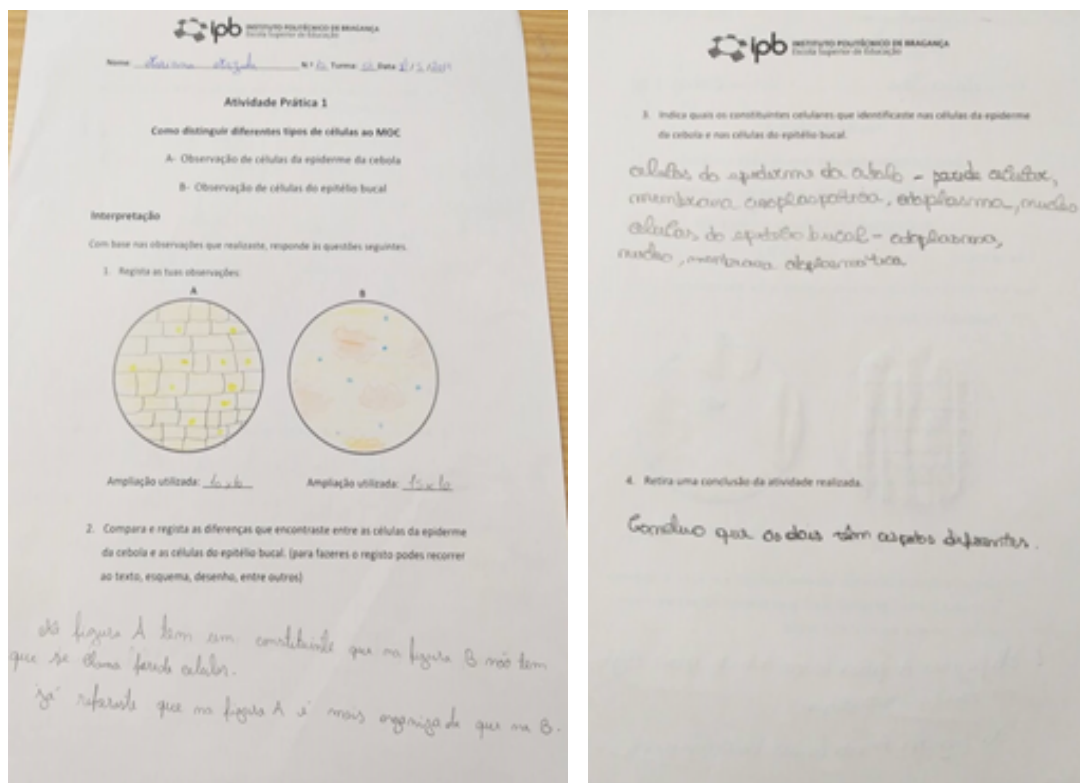 ipb INSTITUTO POLITÉCNICO DE BRAGANÇA
Escola Superior de Educação
Nome N.º Turma: Data
Atividade Prática 1
Como distinguir diferentes tipos de células ao MOC
A- Observação de células da epiderme da cebola
B- Observação de células do epitélio bucal
Interpretação
Com base nas observações que realizaste, responde às questões seguintes.
1. Regista as tuas observações:
A
B
Ampliação utilizada:
Ampliação utilizada: 15x10
2. Compara e regista as diferenças que encontraste entre as células da epiderme
da cebola e as células do epitélio bucal. (para fazeres o registo podes recorrer
ao texto, esquema, desenho, entre outros)
figura A tem um constituinte que na figura B não tem
que se chama parede celular.
que na figura A é mais organizada que na B.
ipb INSTITUTO POLITÉCNICO DE BRAGANÇA
Escola Superior de Educação
3. Indica quais os constituintes celulares que identificaste nas células da epiderme
da cebola e nas células do epitélio bucal.
células do epiderme da - parede celular,
membrana , citoplasma, nucleo
células do epitélio bucal - citoplasma,
nucleo, membrana citoplasmatica.
4. Retira uma conclusão da atividade realizada.
Concluo que os dois têm aspetos diferentes.